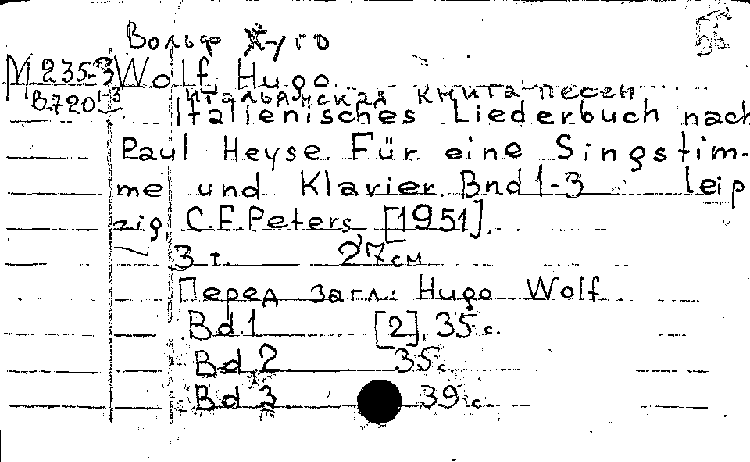 Вольф Хуго
М 235-3 Wolf, Hugo.
В720 1-3 Итальянская книга песен
Italienisches Liederbuch nach
Paul Heyse Für eine Singstim-
me und Klavier. Bnd 1-3 Leip
zig, C.F. Peters, [1951].
3 т. 27 см
Перед загл.: Hugo Wolf
Bd. 1 [2], 35 с.
Bd. 2 35.
Bd 3 39 с.